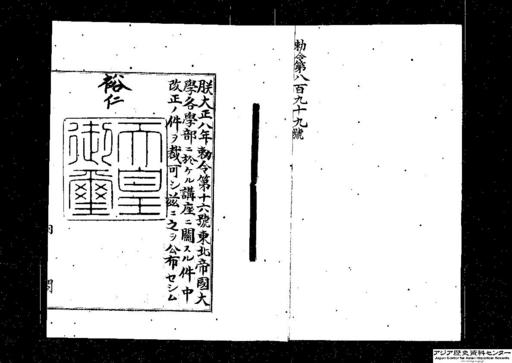 勅令第八百九十九號
朕大正八年勅令第十六號東北帝國大
學各學部ニ於ケル講座ニ關スル件中
改正ノ件ヲ裁可シ茲ニ之ヲ公布セシム
裕仁
天皇
御璽
内閣
アジア歴史資料センター
Japan Center for Asian Historical Records